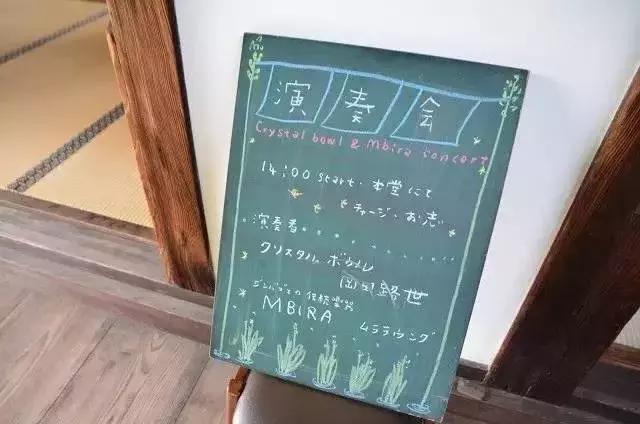 演奏会
Crystal bowl & Mbira concert
14:00 start. 本堂にて
チャージ・お志
演奏者
クリスタル ボウル
路世
ジンバブエの伝統楽器
MBIRA
ムララウング